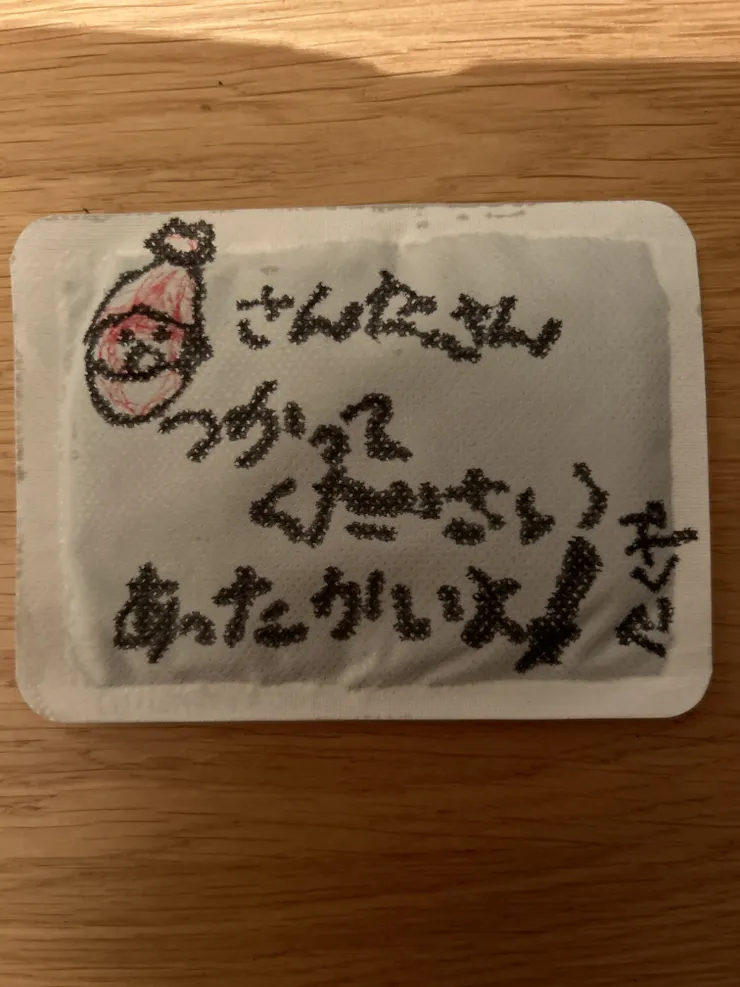 さんたさん
つかって
ください
あったかいよ!
たくや